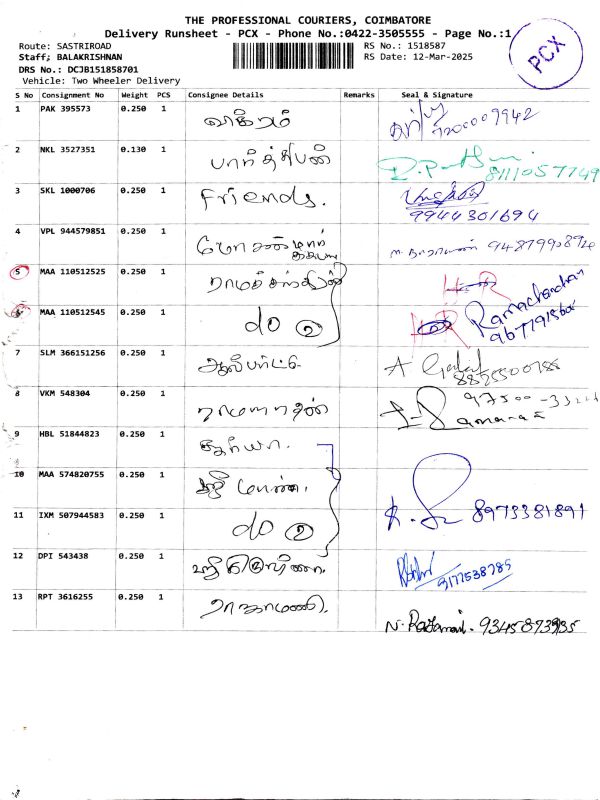 THE PROFESSIONAL COURIERS, COIMBATORE
Delivery Runsheet - PCX - Phone No.:0422-3505555 - Page No.:1
Route: SASTRIROAD
RS No.: 1518587
Staff; BALAKRISHNAN
RS Date: 12-Mar-2025
DRS No.: DCJB151858701
Vehicle: Two Wheeler Delivery
PCX
S No Consignment No Weight PCS Consignee Details Remarks Seal & Signature
1 PAK 395573 0.250 1 விக்ரம் 7200009942
2 NKL 3527351 0.130 1 பார்த்திபன் 8111057749
3 SKL 1000706 0.250 1 Friends. 9944301694
4 VPL 944579851 0.250 1
5 MAA 110512525 0.250 1 ராமச்சந்திரன்
6 MAA 110512545 0.250 1 do 2 Ramachandran
7 SLM 366151256 0.250 1 ஆல்பர்ட் A 8825500785
8 VKM 548304 0.250 1 ராமநாதன் 97500-33224
9 HBL 51844823 0.250 1 சூர்யா.
10 MAA 574820755 0.250 1
11 IXM 507944583 0.250 1 do 2 8973381891
12 DPI 543438 0.250 1 9177538785
13 RPT 3616255 0.250 1 ராஜாமணி. N. Rajamani. 9345873935